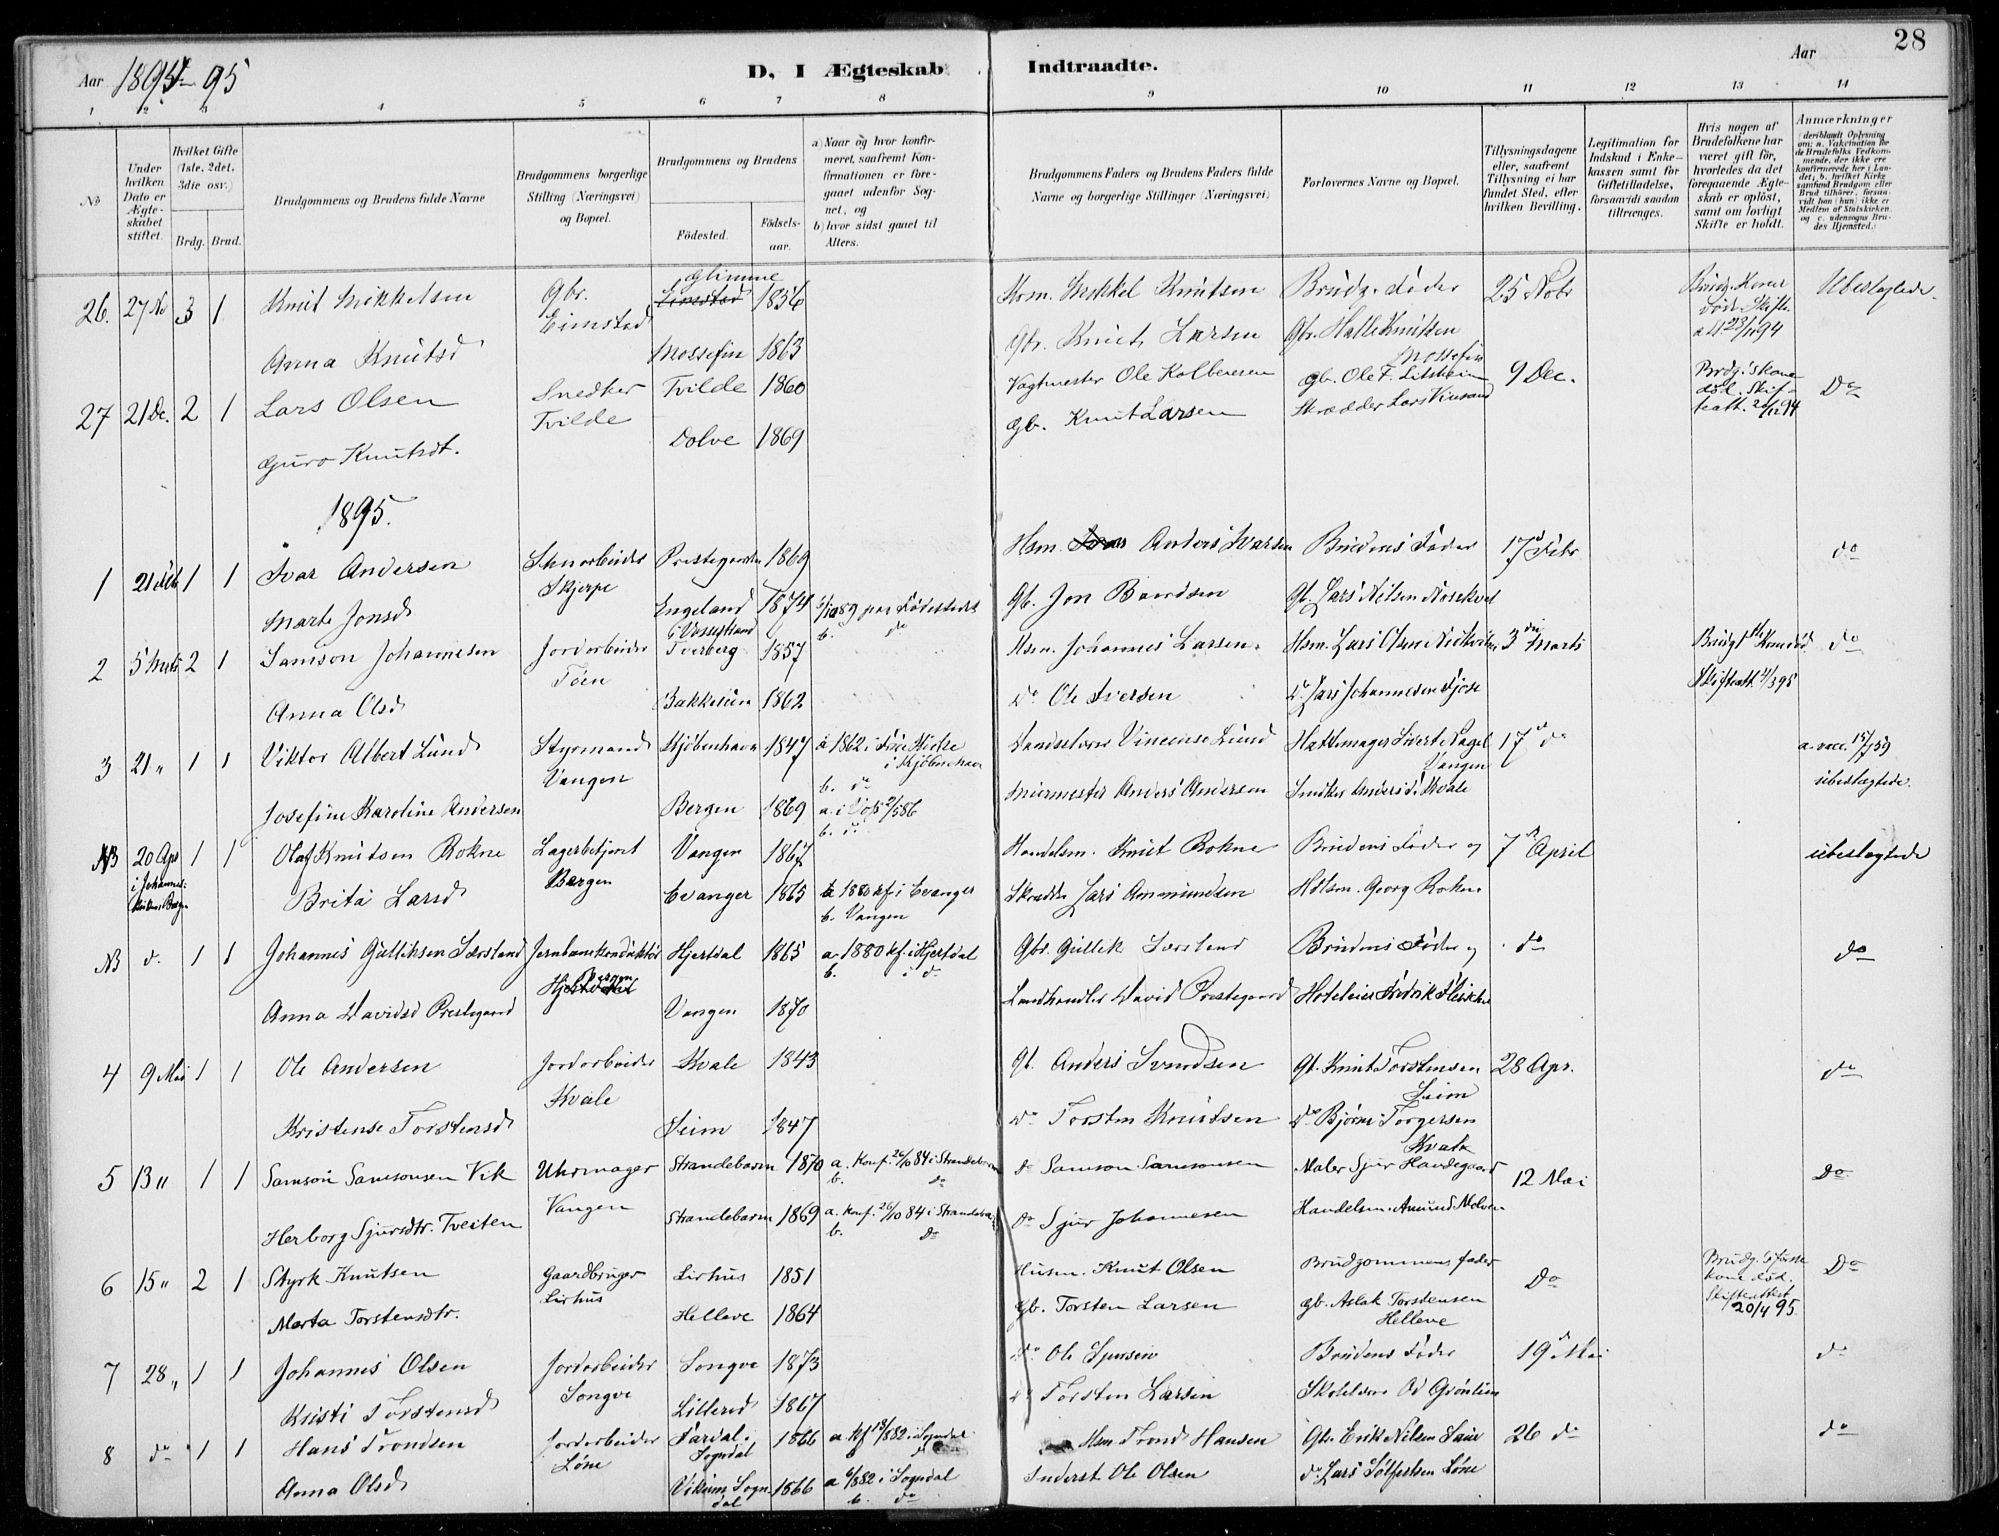 28
Aar 1894-95
D, I Ægteskab Indtraadte.
Aar
1 2 3 4 5 6 7 8 9 10 11 12 13 14
No
Under hvilken Dato er Ægteskabet stiftet.
Hvilket Gifte (1ste, 2det, 3die osv.)
Brdg. Brud.
Brudgommens og Brudens fulde Navne
Brudgommens borgerlige Stilling (Næringsvei) og Bopæl.
Brudgommens og Brudens
Fødested. Fødselsaar.
a) Naar og hvor konfirmeret, saafremt Konfirmationen er foregaaet udenfor Sognet, og
b) hvor sidst gaaet til Alters.
Brudgommens Faders og Brudens Faders fulde Navne og borgerlige Stillinger (Næringsvei)
Forlovernes Navne og Bopæl.
Tillysningsdagene eller, saafremt Tillysning ei har fundet Sted, efter hvilken Bevilling.
Legitimation for Indskud i Enkekassen samt for Giftetilladelse, forsaavidt saadan tiltrænges.
Hvis nogen af Brudefolkene har været gift før, hvorledes da det foregaaende Ægteskab er opløst, samt om lovligt Skifte er holdt.
Anmærkninger
(deriblandt Oplysning om: a. Vaccination for de Brudefolks Vedkommende, der ikke ere konfirmerede her i Landet, b. hvilket Kirkesamfund Brudgom eller Brud tilhører, forsaavidt han (hun) ikke er Medlem af Statskirken, og c. udensogns Brudes Hjemsted.)
26. 27 No 3 1 Knut Mikkelsen Gbr. Eimstad Glimme 1856 Hsm. Mikkel Knutsen Brudg. Fader 25 Nobr Brudg. Koner døde Skifteatt 23/11 94 Ubeslægtede.
Anna Knutsd Mossefin 1863 Gbr. Knut Larsen Gbr. Halle Knutsen Mossefin
27 21 De. 2 1 Lars Olsen Snedker Tvilde Tvilde 1860 Vagtmester Ole Kolbensen gb. Ole F. 9 Dec. Brdg. s kone død. Skifteatt. Do
Guro Knutsdt. Dolve 1869 gb. Knut Larsen Skrædder Lars
1895.
1 21 Feb 1 1 Ivar Andersen Skjerpe Prestegarden 1869 Hsm. Anders Ivarsen Brudens Fader 17d Febr do
Marte Jonsd Engeland i Vossestrand 1874 89 paa Fødestedet b. do Gb. Jon Baardsen Gb. Lars Nilsen
2 5 Marts 2 1 Samson Johannesen Jordarbeider Tøen Tverberg 1857 Hsm. Johannes Larsen. Hsm. Lars Olsen 3 Marts Skifteatt. do
Anna Olsd 1862 Do Ole Iversen Do Lars Johannesen Gjøse
3 21 " 1 1 Viktor Albert Lund Styrmand Vangen Kjøbenhavn 1847 a 1862 i Kirke i Kjøbenhavn b. do Lund Hattemager Sivert Nagel Vangen 17d do a. vacc. 15/7 59 ubeslægtede.
Josefine Karoline Andersen Bergen 1869 a. i Voss 2/5 86 b. do Murmester Anders Andersen Snedker Anders Kvale
NB 20 Apr i Johannes-kirken Bergen 1 1 Olaf Knutsen Rokne Lagerbetjent Bergen Vangen 1867 Handelsm. Knut Rokne Brudens Fader og 7d April ubeslægtede
Brita Larsd Evanger 1865 a 1880 kf. i Evanger b. Vangen Skrædder Lars Ammundsen Hdlsm. Georg Rokne
NB do 1 1 Johannes Gulliksen Særsland Jernbanekonduktør Bergen Hjertdal 1865 a. 1880 kf. i Hjertdal b. i do Gbr. Gullik Særsland Brudens Fader og do do
Anna Davidsd Prestegaard Vangen 1870 Landhandler David Prestegaard Hoteleier Fredrik Fleischer
4 9 Mai 1 1 Ole Andersen Jordarbeider Kvale Kvale 1843 Gb. Anders Svendsen Gb. Knut Torstensen Seim 28 Apr. do
Kristense Torstensd Seim 1847 do Torsten Knutsen do Bjørne Torgersen Kvale
5 13 " 1 1 Samson Samsonsen Vik Uhrmager Vangen Strandebarm 1870 a. Konf. 26/10 84 i Strandebarm b. do do Samson Samsonsen Maler Sjur Handegaard 12 Mai Do
Herborg Sjursdtr. Tveiten Strandebarm 1869 a. Konf. 26/10 84 i Strandebarm b. Do do Sjur Johannesen Handelsm. Amund Melven
6 15 " 2 1 Styrk Knutsen Gaardbruger Lirhus Lirhus 1851 Husm. Knut Olsen Brudgommens fader Do Brudg. s første kone død. Skifteattest 20/4 95. Do
Marta Torstensdtr. Helleve 1864 gb. Torsten Larsen gb. Aslak Torstensen Helleve
7 28 " 1 1 Johannes Olsen Jordarbeider Songve Songve 1873 do Ole Brudens Fader 19d Mai do
Kristi Torstensd 1867 do Torsten Larsen Od Grønlien
8 do 1 1 Hans Trondsen Jordarbeider Løne Sogndal 1866 a. kf 82 i Sogndal Hsm. Trond Hansen Gbr. Erik Nilsen 26 do do
Anna Olsd Sogndal 1866 a 6/8 82 i Sogndal b. do Inderst. Ole Olsen do Lars Løne